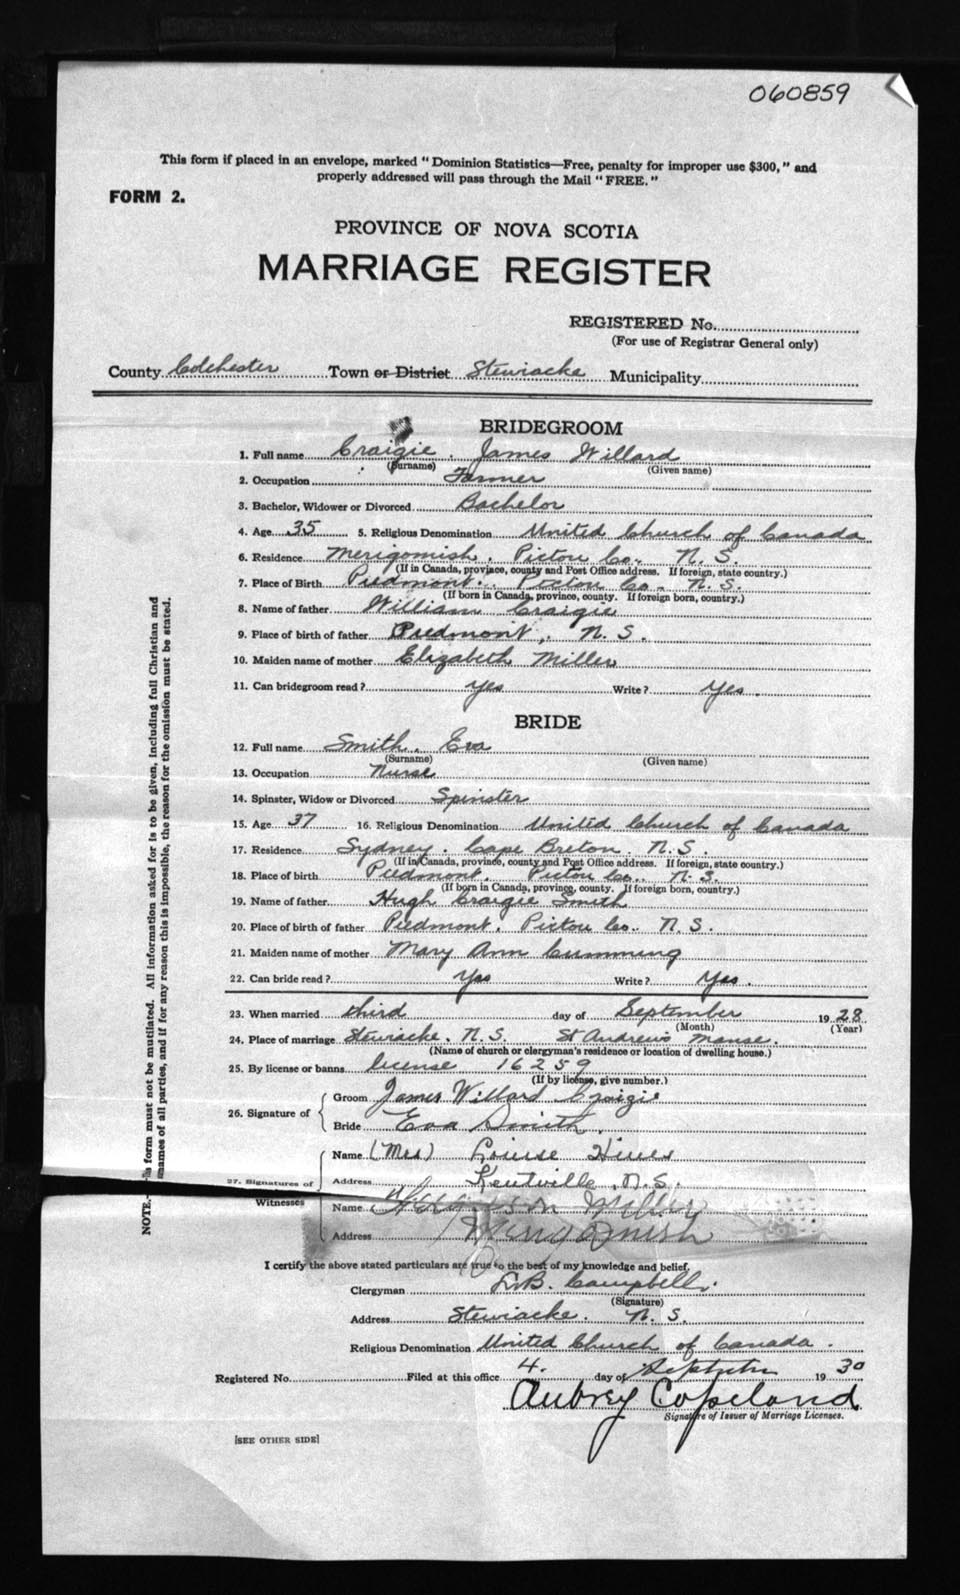 060859
This form if placed in an envelope, marked "Dominion Statistics—Free, penalty for improper use $300," and
properly addressed will pass through the Mail "FREE."
FORM 2.
PROVINCE OF NOVA SCOTIA
MARRIAGE REGISTER
REGISTERED No.
(For use of Registrar General only)
County Colchester Town or District Stewiacke Municipality
BRIDEGROOM
1. Full name Craigie, James Willard
(Surname) (Given name)
2. Occupation Farmer
3. Bachelor, Widower or Divorced Bachelor
4. Age 35 5. Religious Denomination United Church of Canada
6. Residence Merigomish, Pictou Co. N. S.
(If in Canada, province, county and Post Office address. If foreign, state country.)
7. Place of Birth Piedmont, Pictou Co. N. S.
(If born in Canada, province, county. If foreign born, country.)
8. Name of father William Craigie
9. Place of birth of father Piedmont, N. S.
10. Maiden name of mother Elizabeth Miller
11. Can bridegroom read? yes Write? yes.
BRIDE
12. Full name Smith, Eva
(Surname) (Given name)
13. Occupation Nurse
14. Spinster, Widow or Divorced Spinster
15. Age 37 16. Religious Denomination United Church of Canada
17. Residence Sydney, Cape Breton, N. S.
(If in Canada, province, county and Post Office address. If foreign, state country.)
18. Place of birth Piedmont, Pictou Co., N. S.
(If born in Canada, province, county. If foreign born, country.)
19. Name of father Hugh Craigie Smith
20. Place of birth of father Piedmont, Pictou Co., N. S.
21. Maiden name of mother Mary Ann Cumming
22. Can bride read? Yes Write? Yes.
23. When married third day of September 1928
(Month) (Year)
24. Place of marriage Stewiacke, N. S. St Andrews Manse.
(Name of church or clergyman's residence or location of dwelling house.)
25. By license or banns license 16259
(If by license, give number.)
26. Signature of Groom James Willard Craigie
Bride Eva Smith.
27. Signatures of Witnesses
Name (Mrs) Louise Hines
Address Kentville, N.S.
Name Miller
Address Merigomish
I certify the above stated particulars are true to the best of my knowledge and belief.
Clergyman Campbell.
(Signature)
Address Stewiacke. N. S.
Religious Denomination United Church of Canada.
Registered No. Filed at this office 4. day of September 1930
Aubrey Copeland
Signature of Issuer of Marriage Licenses.
[SEE OTHER SIDE]
NOTE.—This form must not be mutilated. All information asked for is to be given, including full Christian and
names of all parties, and if for any reason this is impossible, the reason for the omission must be stated.